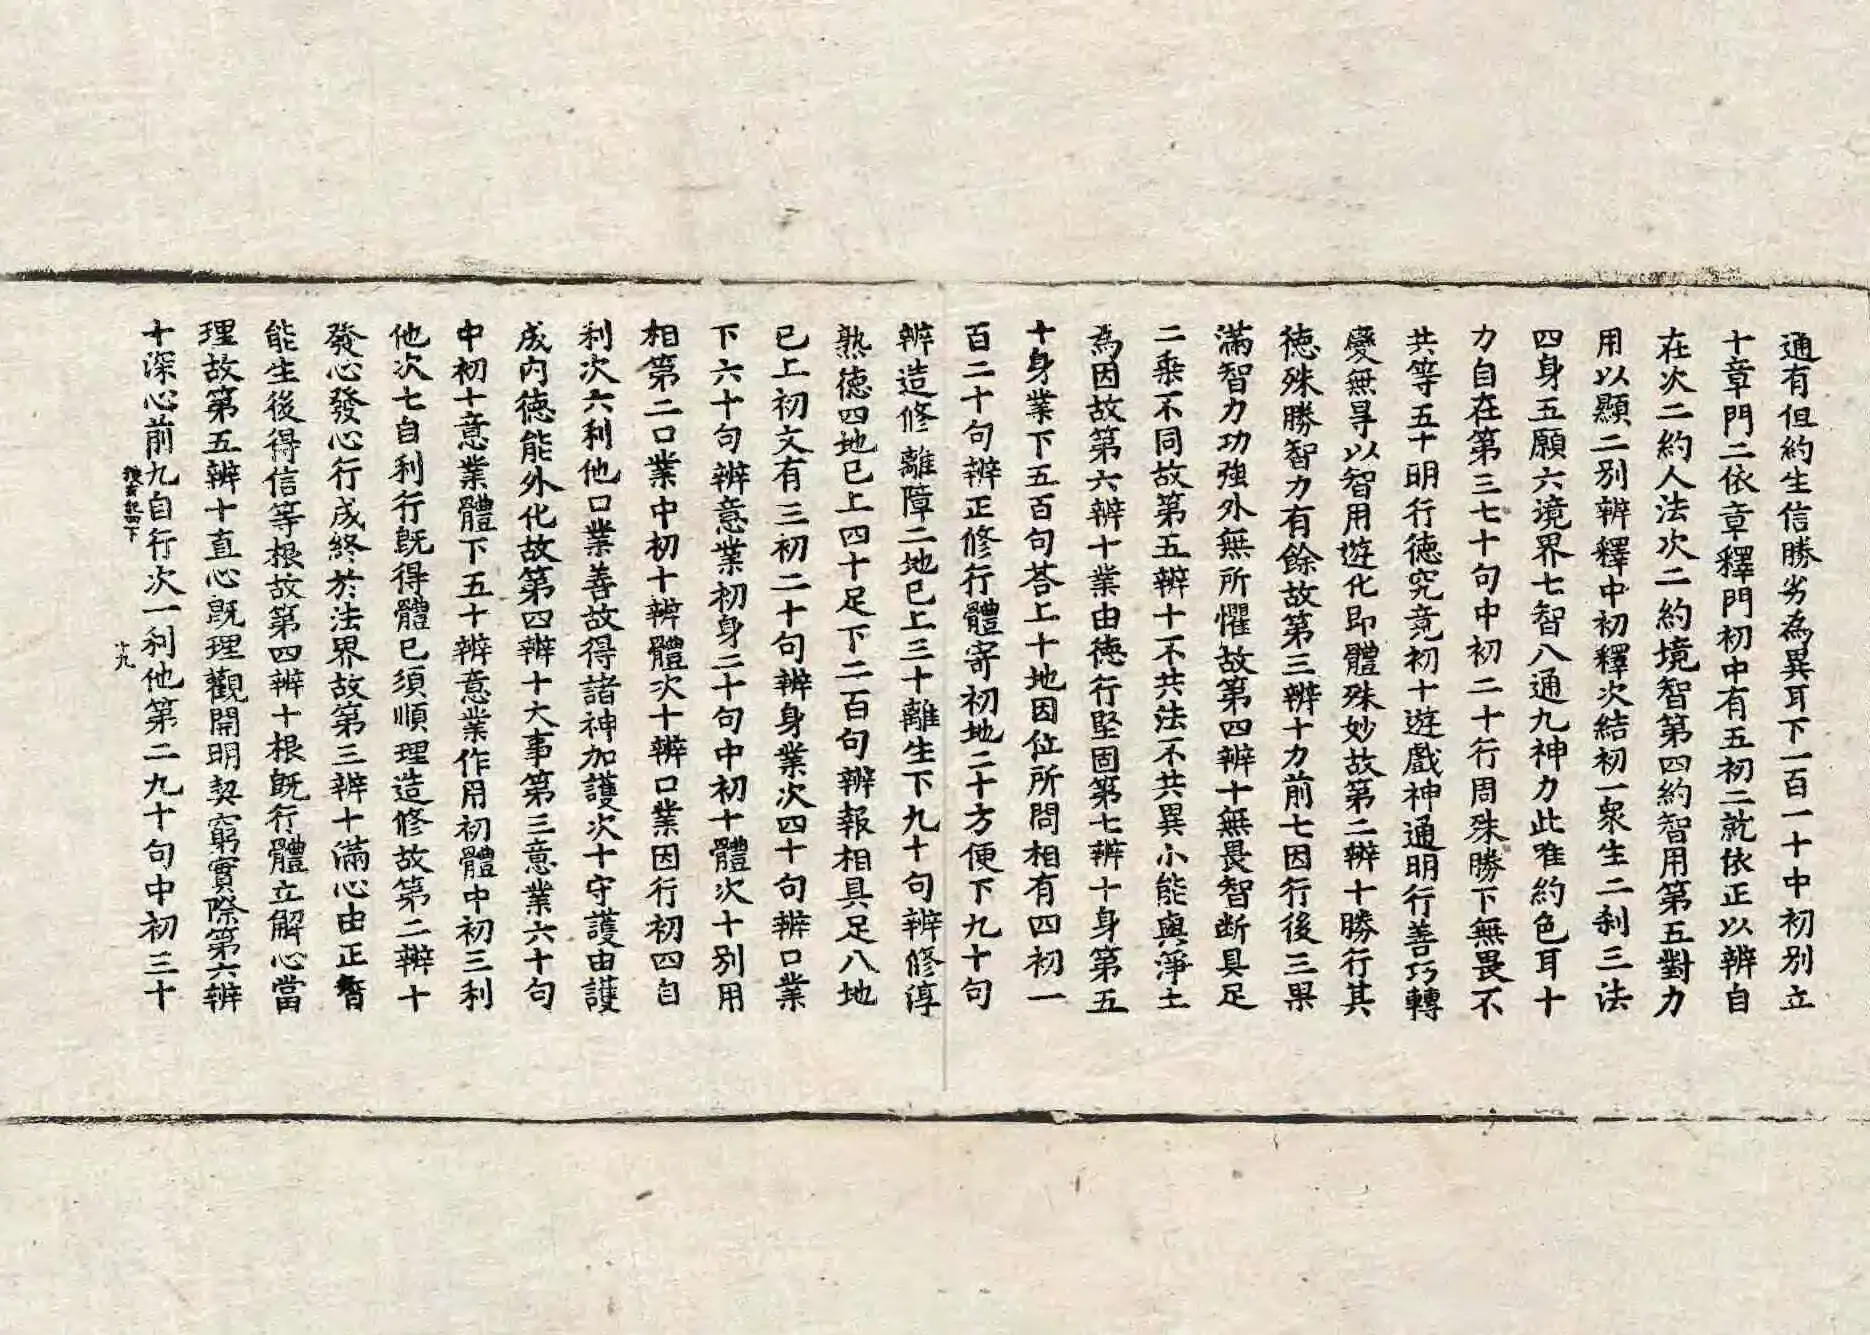 通有但約生信勝劣為異耳下一百一十中初別立
十章門二依章釋門初中有五初二就依正以辨自
在次二約人法次二約境智第四約智用第五對力
用以顯二別辨釋中初釋次結初一衆生二刹三法
四身五願六境界七智八通九神力此唯約色耳十
力自在第三七十句中初二十行周殊勝下無畏不
共等五十明行徳究竟初十遊戲神通明行善巧轉
變無㝵以智用遊化即體殊妙故第二辨十勝行其
徳殊勝智力有餘故第三辨十力前七因行後三果
滿智力功強外無所懼故第四辨十無畏智断具足
二乘不同故第五辨十不共法不共異小能與淨土
為因故第六辨十業由徳行堅固第七辨十身第五
十身業下五百句荅上十地因位所問相有四初一
百二十句辨正修行體寄初地二十方便下九十句
辨造修離障二地已上三十離生下九十句辨修淳
熟徳四地已上四十足下二百句辨報相具足八地
已上初文有三初二十句辨身業次四十句辨口業
下六十句辨意業初身二十句中初十體次十別用
相第二口業中初十辨體次十辨口業因行初四自
利次六利他口業善故得諸神加護次十守護由護
成内徳能外化故第四辨十大事第三意業六十句
中初十意業體下五十辨意業作用初體中初三利
他次七自利行既得體已須順理造修故第二辨十
發心發心行成終於法界故第三辨十滿心由正智
能生後得信等根故第四辨十根既行體立解心當
理故第五辨十直心既理觀開明契窮實際第六辨
十深心前九自行次一利他第二九十句中初三十
十九